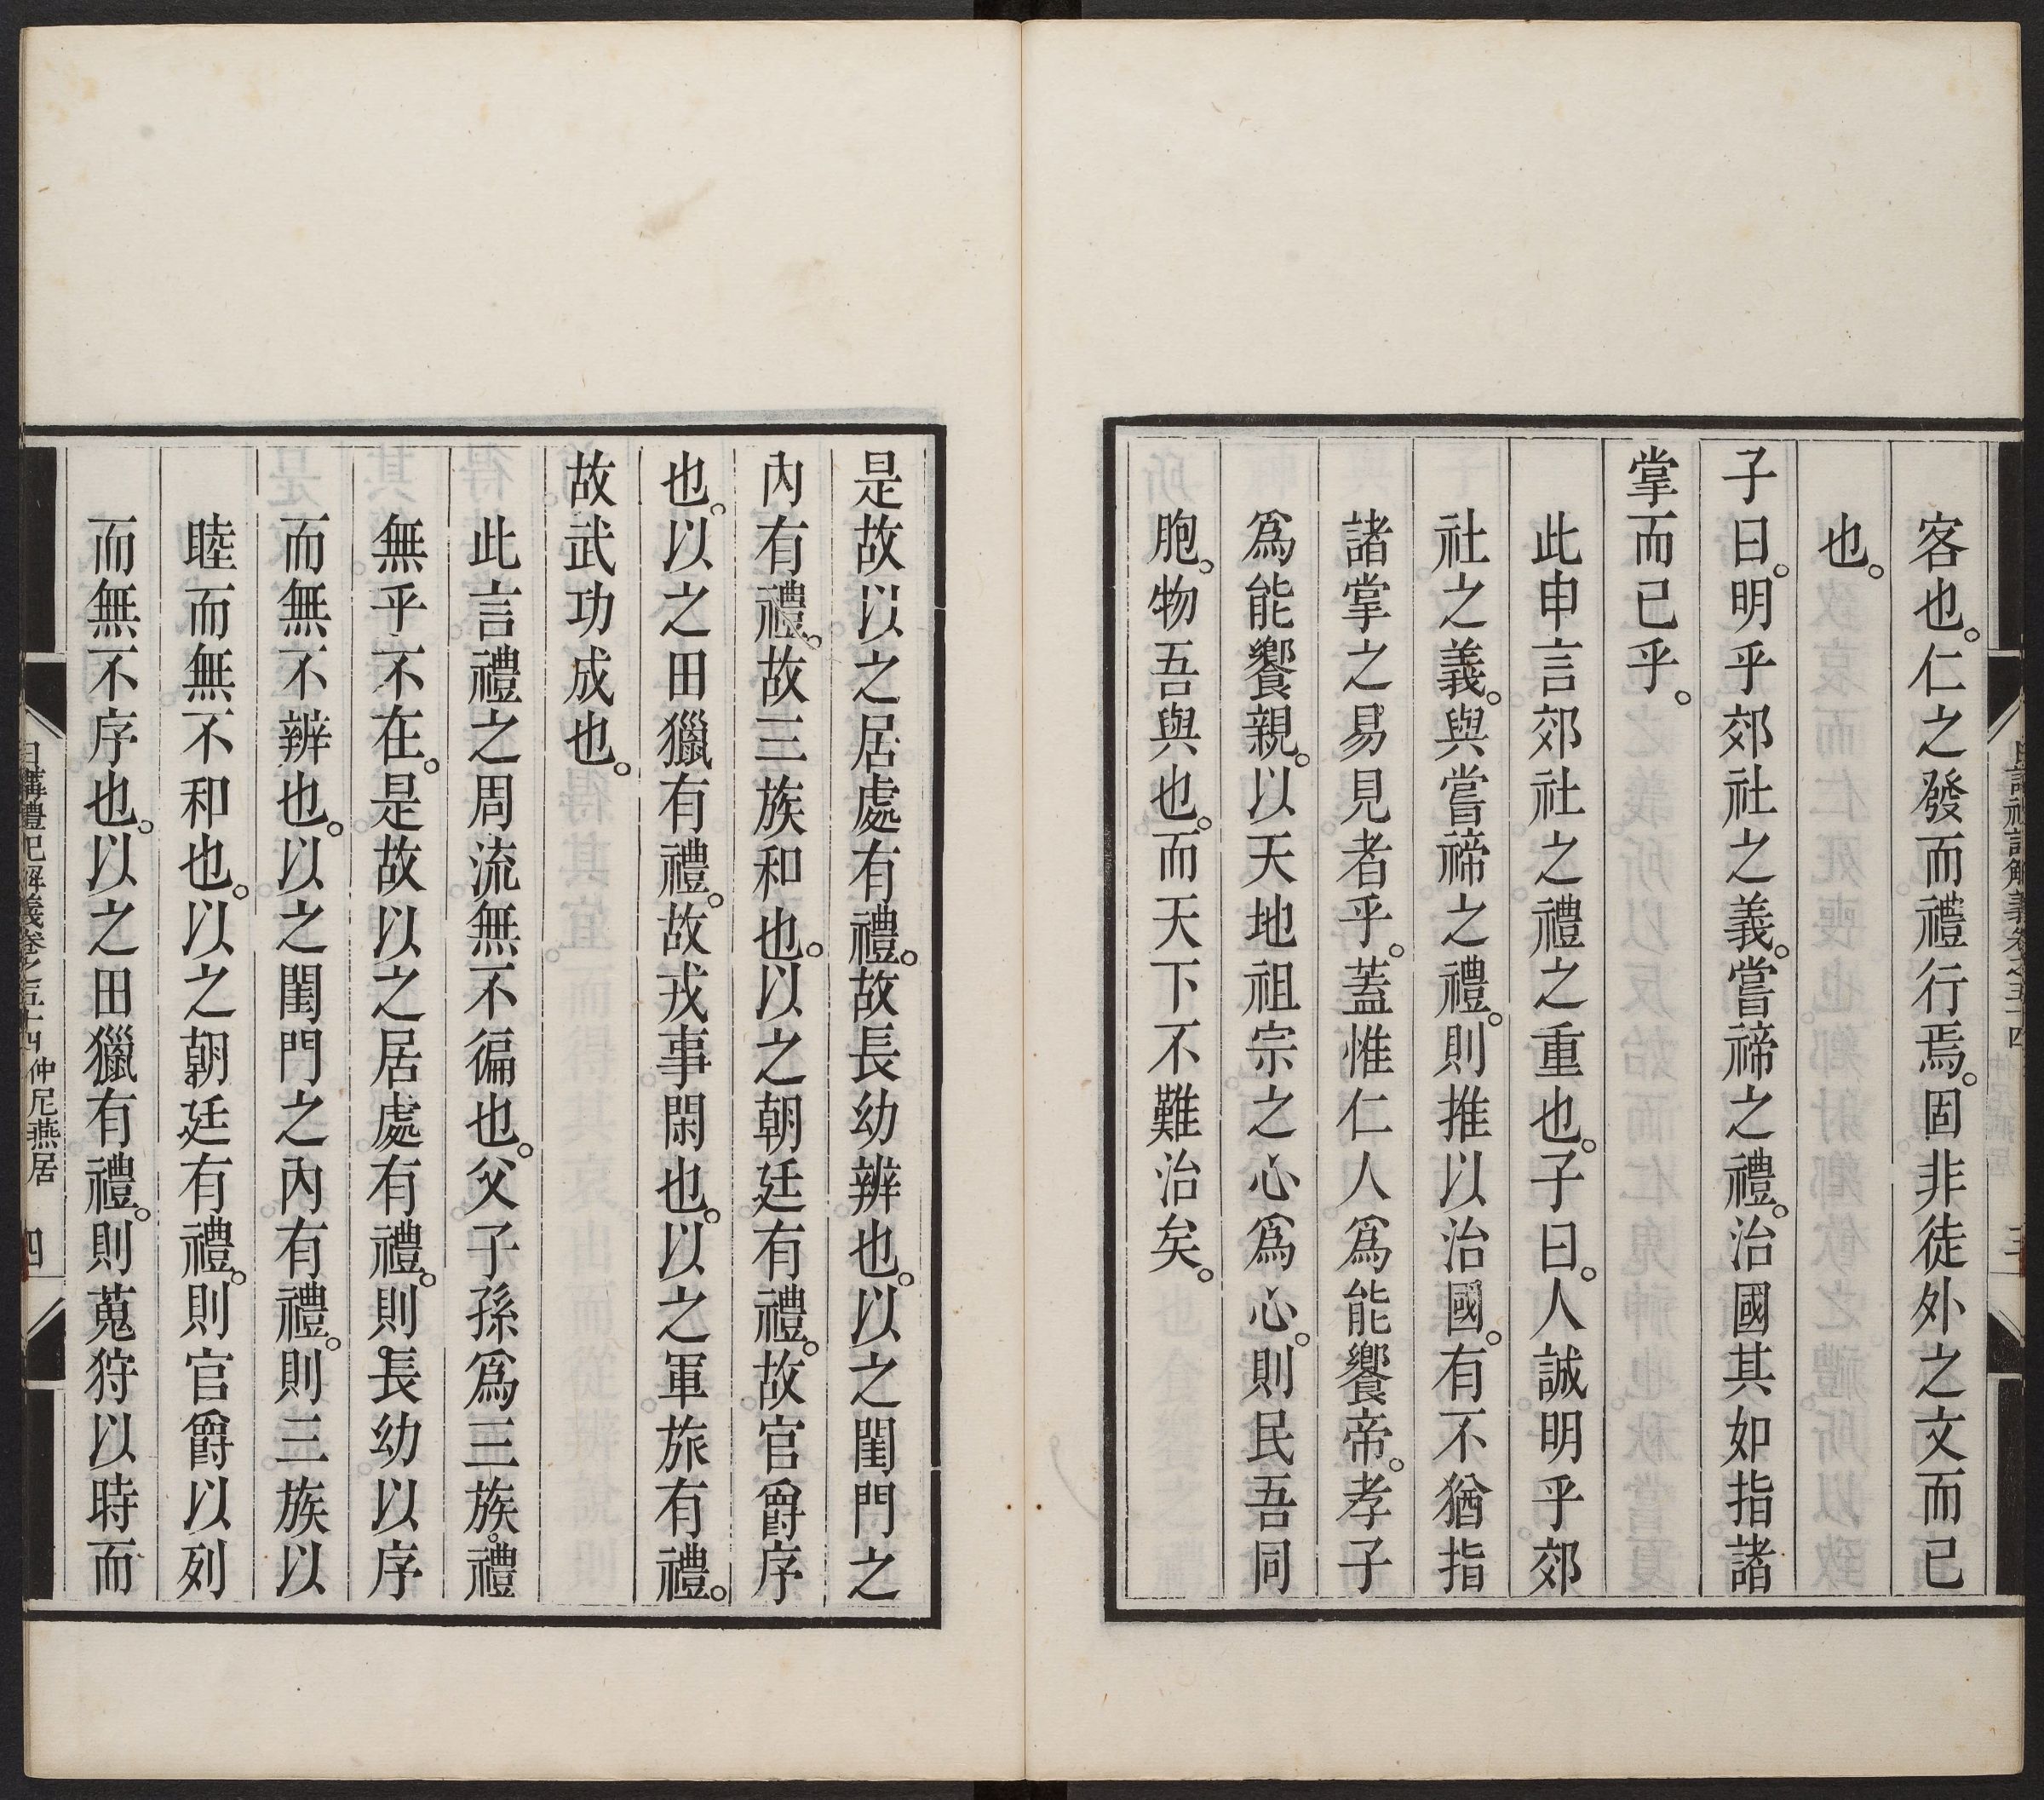 客也。仁之發而禮行焉。固非徒外之文而已
也。
子曰。明乎郊社之義。嘗禘之禮。治國其如指諸
掌而已乎。
此申言郊社之禮之重也。子曰。人誠明乎郊
社之義。與嘗禘之禮。則推以治國。有不猶指
諸掌之易見者乎。蓋惟仁人爲能饗帝。孝子
爲能饗親。以天地祖宗之心爲心。則民吾同
胞。物吾與也。而天下不難治矣。
是故以之居處有禮。故長幼辨也。以之閨門之
內有禮。故三族和也。以之朝廷有禮。故官爵序
也。以之田獵有禮。故戎事閑也。以之軍旅有禮。
故武功成也。
此言禮之周流無不徧也。父子孫爲三族。禮
無乎不在。是故以之居處有禮。則長幼以序
而無不辨也。以之閨門之內有禮。則三族以
睦而無不和也。以之朝廷有禮。則官爵以列
而無不序也。以之田獵有禮。則蒐狩以時而
日講禮記解義卷之五十四 仲尼燕居 四